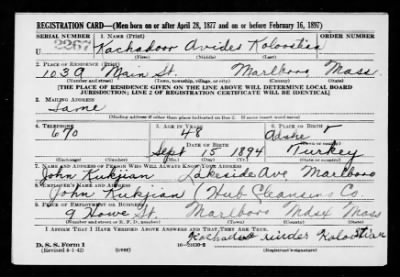 REGISTRATION CARD—(Men born on or after April 28, 1877 and on or before February 16, 1897)
SERIAL NUMBER 1. NAME (Print) ORDER NUMBER
U 2367 Kachadoor Avides Kolooslian
(First) (Middle) (Last)
2. PLACE OF RESIDENCE (Print)
1039 Main St. Marlboro Mass.
(Number and street) (Town, township, village, or city) (County) (State)
[THE PLACE OF RESIDENCE GIVEN ON THE LINE ABOVE WILL DETERMINE LOCAL BOARD
JURISDICTION; LINE 2 OF REGISTRATION CERTIFICATE WILL BE IDENTICAL]
3. MAILING ADDRESS
Same
(Mailing address if other than place indicated on line 2. If same insert word same)
4. TELEPHONE 5. AGE IN YEARS 6. PLACE OF BIRTH
670 48
DATE OF BIRTH
Sept 15 1894 Turkey
(Exchange) (Number) (Mo.) (Day) (Yr.) (State or country)
7. NAME AND ADDRESS OF PERSON WHO WILL ALWAYS KNOW YOUR ADDRESS
John Kukjian Lakeside Ave Marlboro
8. EMPLOYER'S NAME AND ADDRESS
John Kukjian (Hub Cleansing Co
9. PLACE OF EMPLOYMENT OR BUSINESS
9 Howe St. Marlboro Mass
(Number and street or R. F. D. number) (Town) (County) (State)
I AFFIRM THAT I HAVE VERIFIED ABOVE ANSWERS AND THAT THEY ARE TRUE.
D. S. S. Form 1
(Revised 4-1-42) (over) (Registrant's signature)